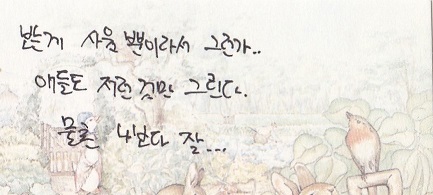 보는게 사움 뿐이라서 그런가..
애들도 저런 것만 그린다.
물론 나보다 잘...